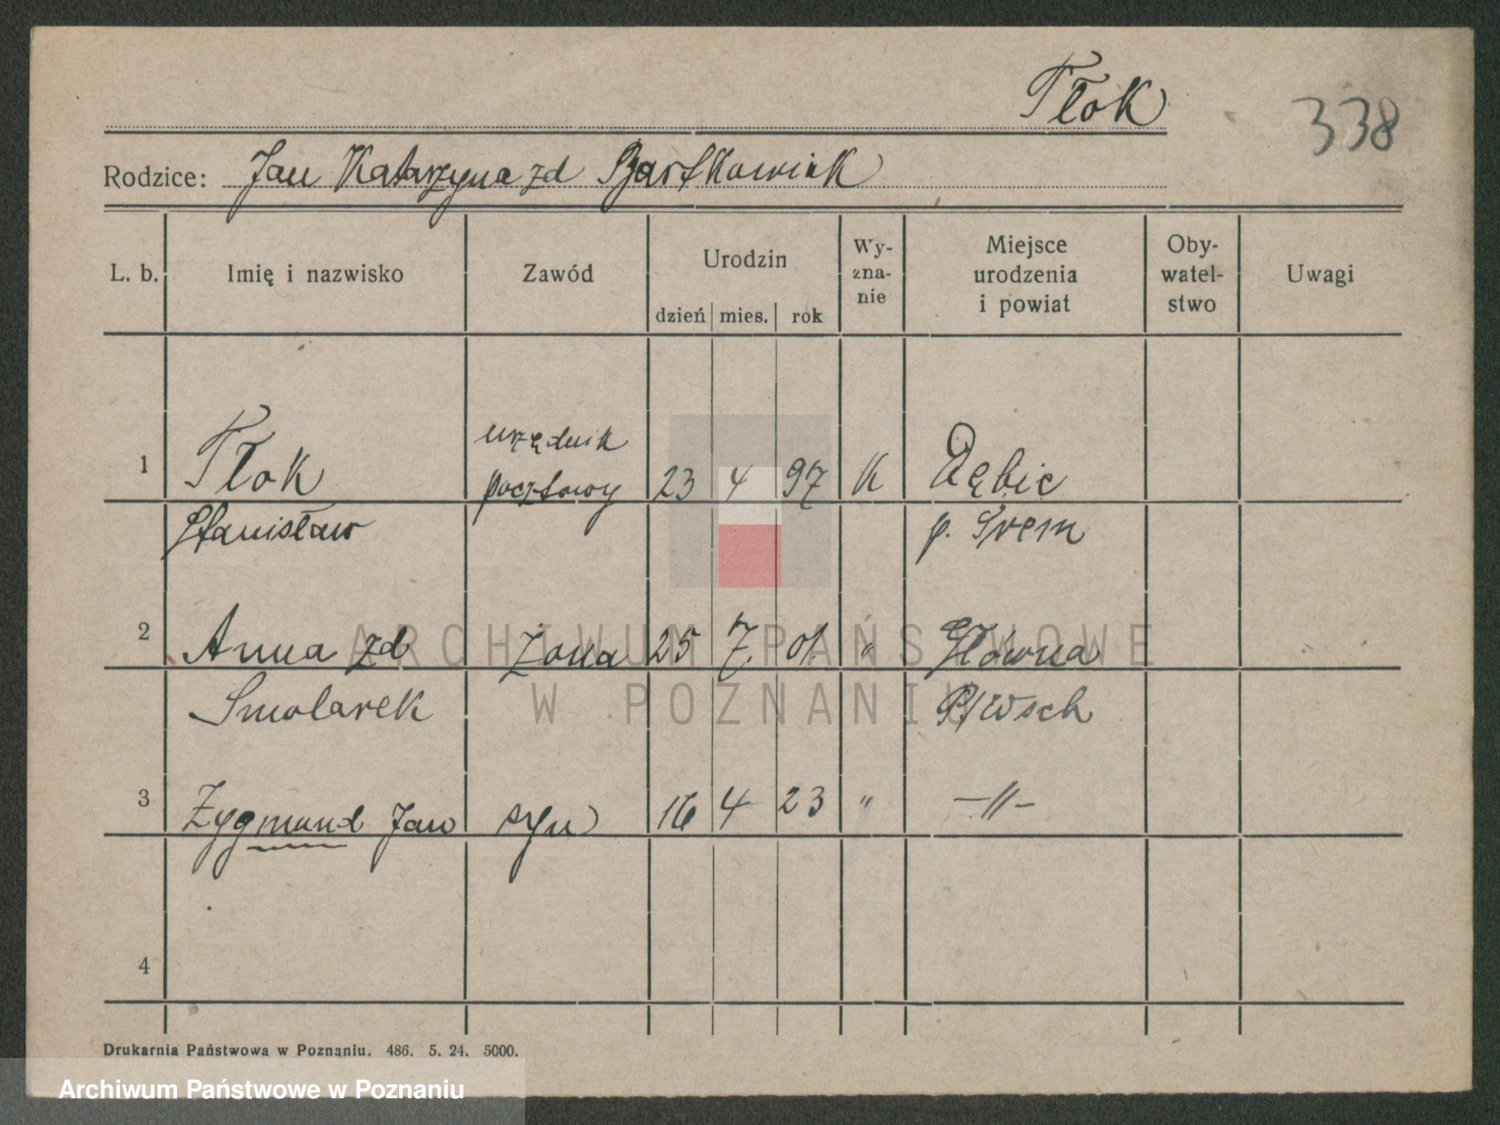 Tłok
338
Rodzice: Jan Katarzyna zd Bartkowiak
L. b. Imię i nazwisko Zawód Urodzin dzień mies. rok Wy-zna-nie Miejsce urodzenia i powiat Oby-watel-stwo Uwagi
urzędnik
1 Tłok pocztowy 23 4 97 K Dębiec
Stanisław p. Śrem
2 Anna zd żona 25 7. 01. " Główna
Smolarek P/Wsch
3 Zygmund Jan syn 16 4 23 " —"—
4
ARCHIWUM PAŃSTWOWE
W POZNANIU
Drukarnia Państwowa w Poznaniu. 486. 5. 24. 5000.
Archiwum Państwowe w Poznaniu